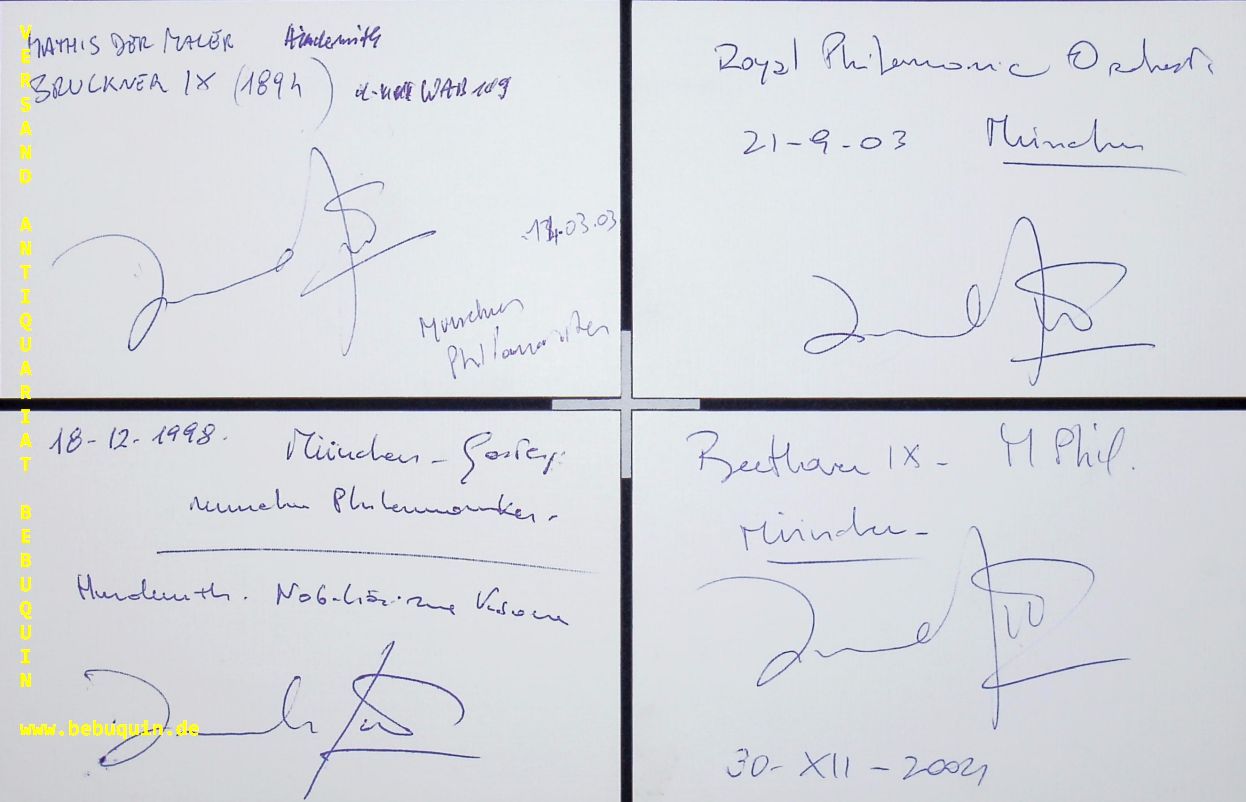 MATHIS DER MALER Hindemith
BRUCKNER IX (1894) d-moll WAB 109
14.03.03
Münchner
Philharmoniker
Royal Philharmonic Orchestra
21-9-03 München
18-12-1998. München - Gasteig
Münchn Philharmoniker.
Hindemith. Nobilissima Visione
Beethoven IX - M Phil.
München -
30-XII-2004
VERSAND ANTIQUARIAT BEBUQUIN
www.bebuquin.de